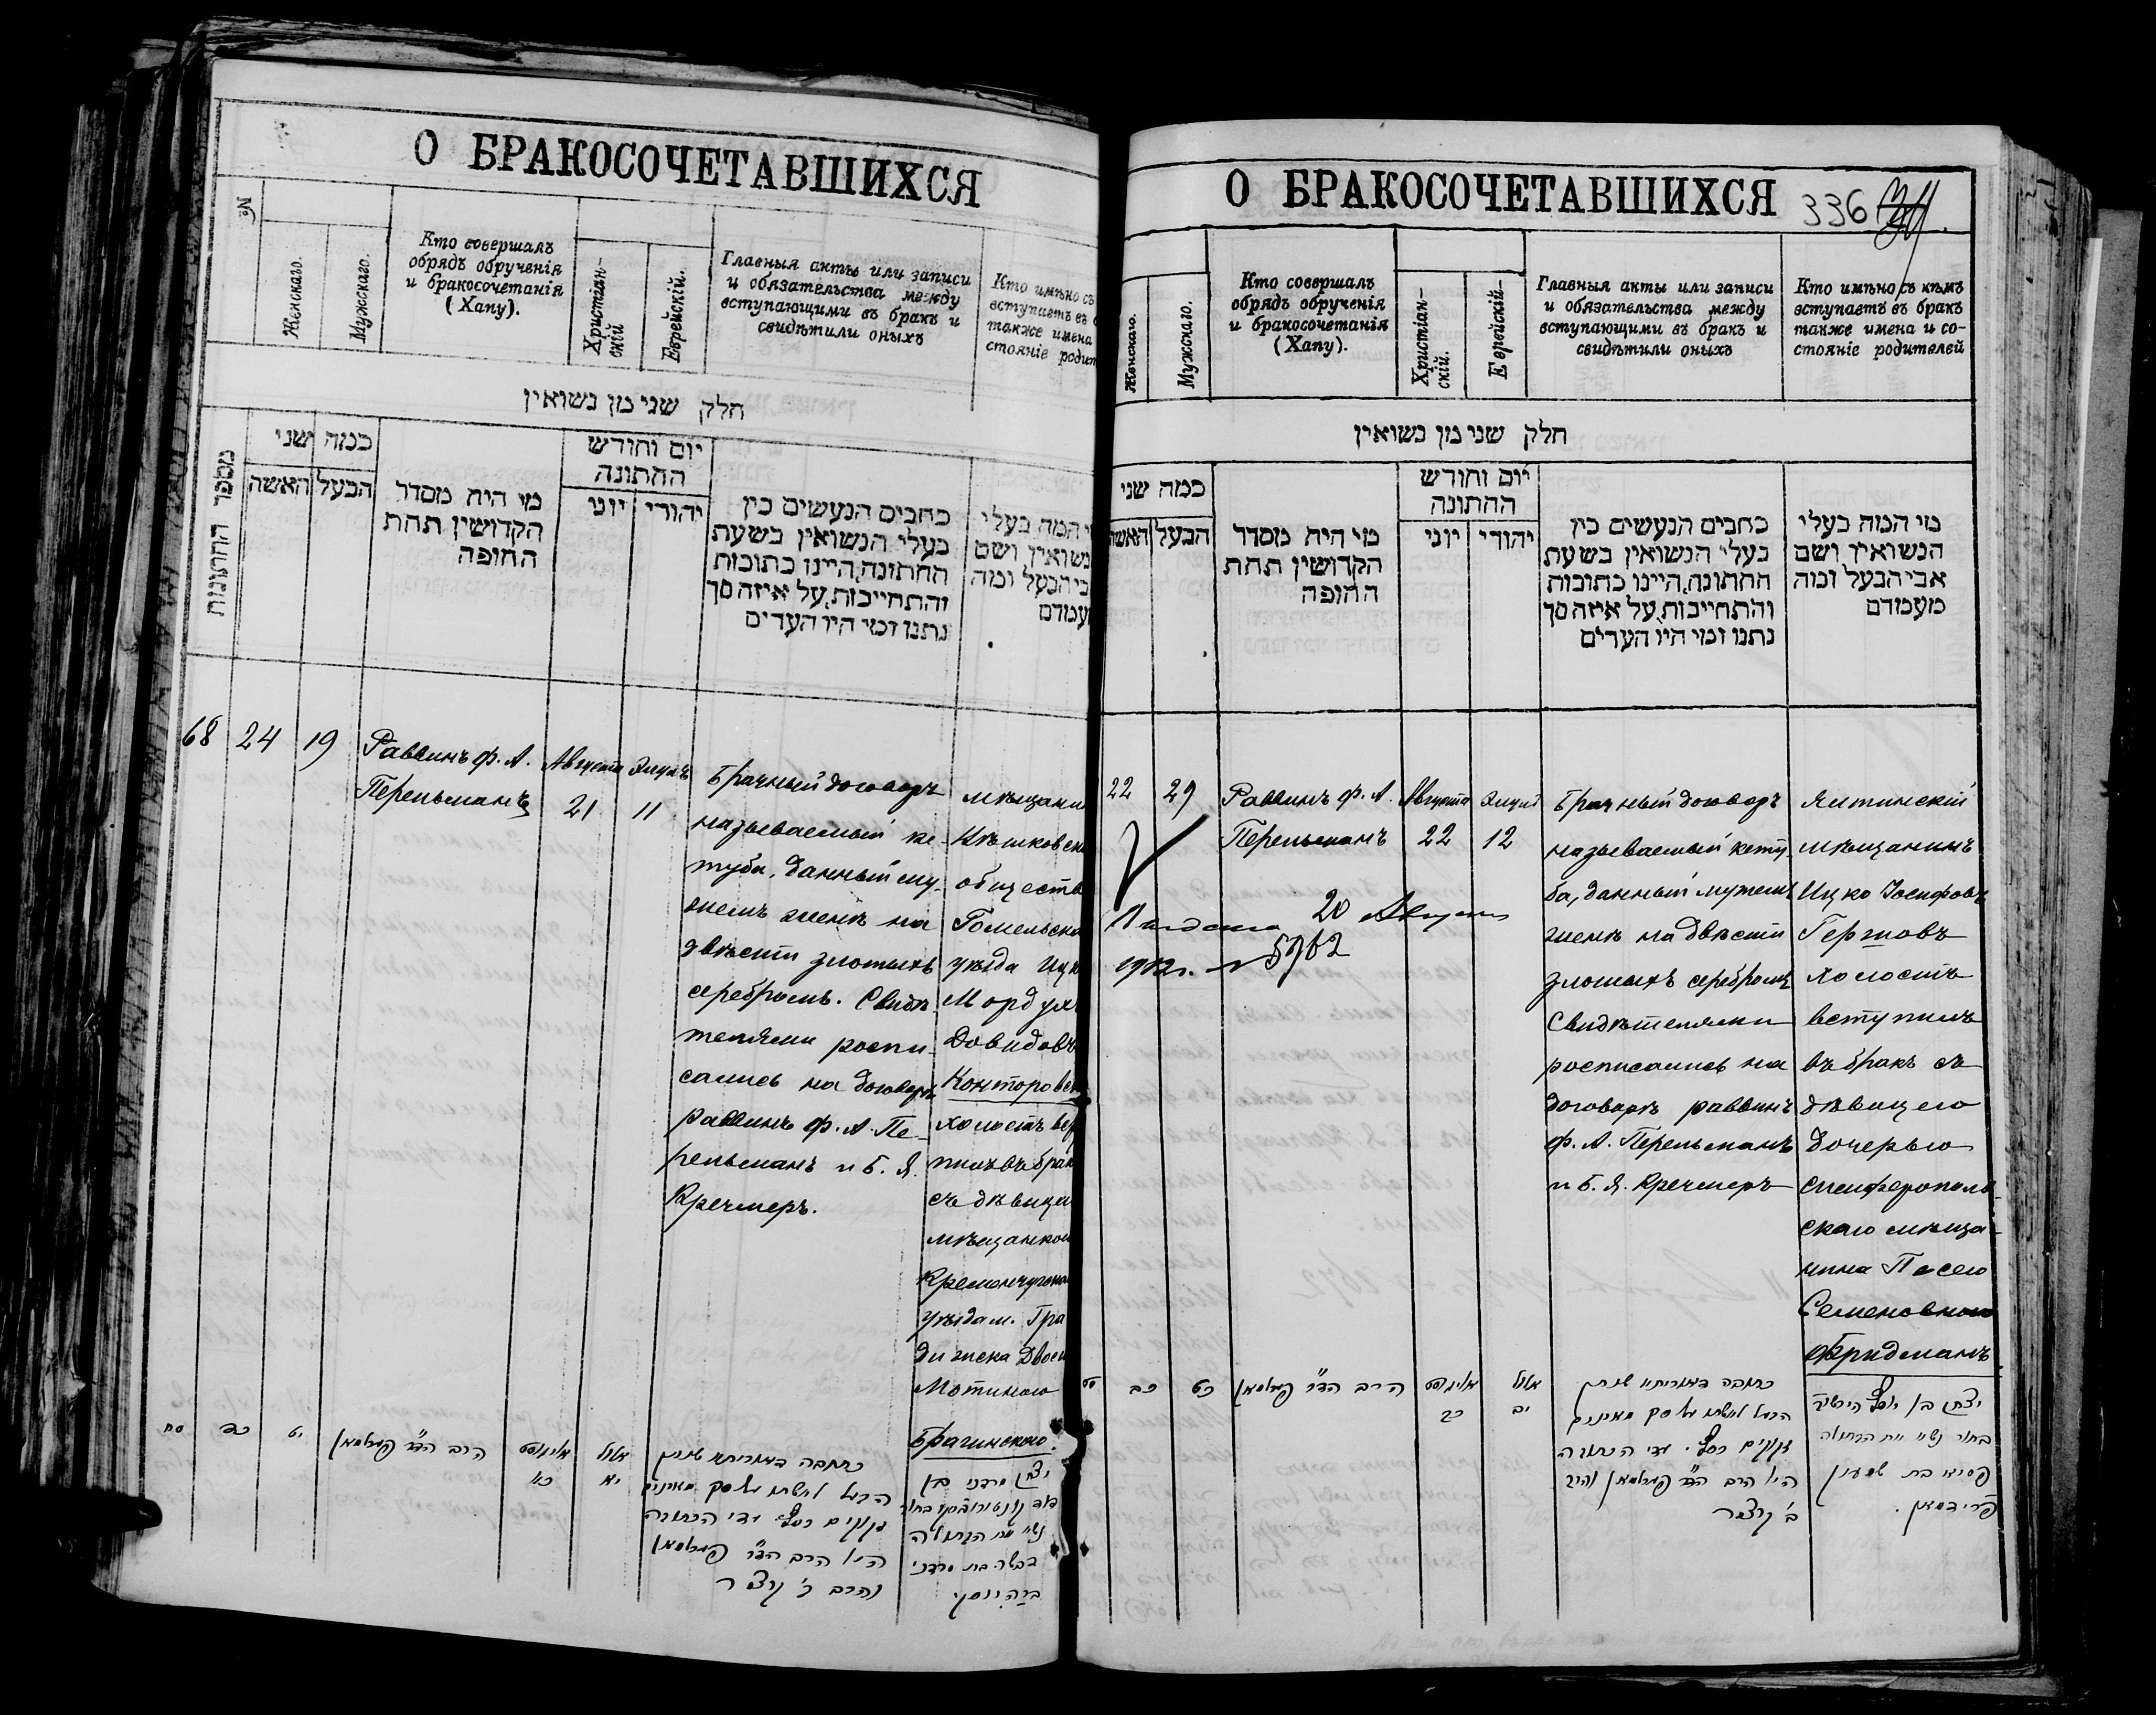 О БРАКОСОЧЕТАВШИХСЯ
№
Женскаго.
Мужскаго.
Кто совершалъ
обрядъ обрученія
и бракосочетанія
(Хапу).
Христіан-
скій
Еврейскій.
Главныя акты или записи
и обязательства между
вступающими въ бракъ и
свидѣтили оныхъ
Кто имѣно съ
вступаетъ въ
также имена
стояніе родит
חלק שני מן נשואין
מספר החתונות
כמה שני
האשה
הבעל
מי היה מסדר
הקדושין תחת
החופה
יום וחודש
החתונה
יוני
יהודי
כתבים הנעשים בין
בעלי הנשואין בשעת
החתונה, היינו כתובות
והתחייבות, על איזה סך
נתנו ומי היו העדים
המה בעלי
נשואין ושם
בי הבעל ומה
עמדם
68
24
19
Раввинъ Ф. А.
Перельманъ
Августа
21
Элулъ
11
Брачный договоръ
называемый ке-
туба, данный му-
жемъ женѣ на
двѣсти злотыхъ
серебромъ. Свидѣ-
телями роспи-
сались на договорѣ
раввинъ Ф. А. Пе-
рельманъ и Б. Я.
Кречмеръ.
мѣщани
обществ
Гомельска
уѣзда Ицк
Мордух
Довидовъ
Конторовск
холостъ всту
пилъ въ брак
съ дѣвица
мѣщанкой
Кременчугска
уѣзда м. Гра
дижска Двося
Мотиною
Брагинскою.
סח
כד
יט
הרב הד״ר פערלמאן
אויגוסט
כא
אלול
יא
כתובה דאורייתא שנתן
הבעל לאשתו על סך מאתים
זקוקים כסף. עדי הכתובה
היו הרב הד״ר פערלמאן
והרב ב׳ קרצמר
יצחק מרדכי בן
דוד קונטורובסקי בחור
נשא את הבתולה
בת מרדכי
О БРАКОСОЧЕТАВШИХСЯ
336
Женскаго.
Мужскаго.
Кто совершалъ
обрядъ обрученія
и бракосочетанія
(Хапу).
Христіан-
скій.
Еврейскій-
Главныя акты или записи
и обязательства между
вступающими въ бракъ и
свидѣтили оныхъ
Кто имѣно съ кѣмъ
вступаетъ въ бракъ
также имена и со-
стояніе родителей
חלק שני מן נשואין
כמה שני
האשה
הבעל
מי היה מסדר
הקדושין תחת
החופה
יום וחודש
החתונה
יוני
יהודי
כתבים הנעשים בין
בעלי הנשואין בשעת
החתונה, היינו כתובות
והתחייבות, על איזה סך
נתנו ומי היו העדים
מי המה בעלי
הנשואין ושם
אבי הבעל ומה
מעמדם
22
29
Раввинъ Ф. А.
Перельманъ
Августа
22
Элулъ
12
20 Августа
1912г. №
Брачный договоръ
называемый кету-
ба, данный мужемъ
женѣ на двѣсти
злотыхъ серебромъ
Свидѣтелями
росписались на
договорѣ раввинъ
Ф. А. Перельманъ
и Б. Я. Кречмеръ
Ялтинскій
мѣщанинъ
Ицко Іосифовъ
холостъ
вступилъ
въ бракъ съ
дѣвицею
дочерью
симферополь-
скаго мѣща-
нина Песею
Семеновною
Фридманъ
סט
כב
כט
הרב הד״ר פערלמאן
אויגוסט
כב
אלול
יב
כתובה דאורייתא שנתן
הבעל לאשתו על סך מאתים
זקוקים כסף. עדי הכתובה
היו הרב הד״ר פערלמאן והרב
ב׳ קרצמר
יצחק בן יוסף
בחור נשא את הבתולה
פסיא בת שמעון
פרידמאן.